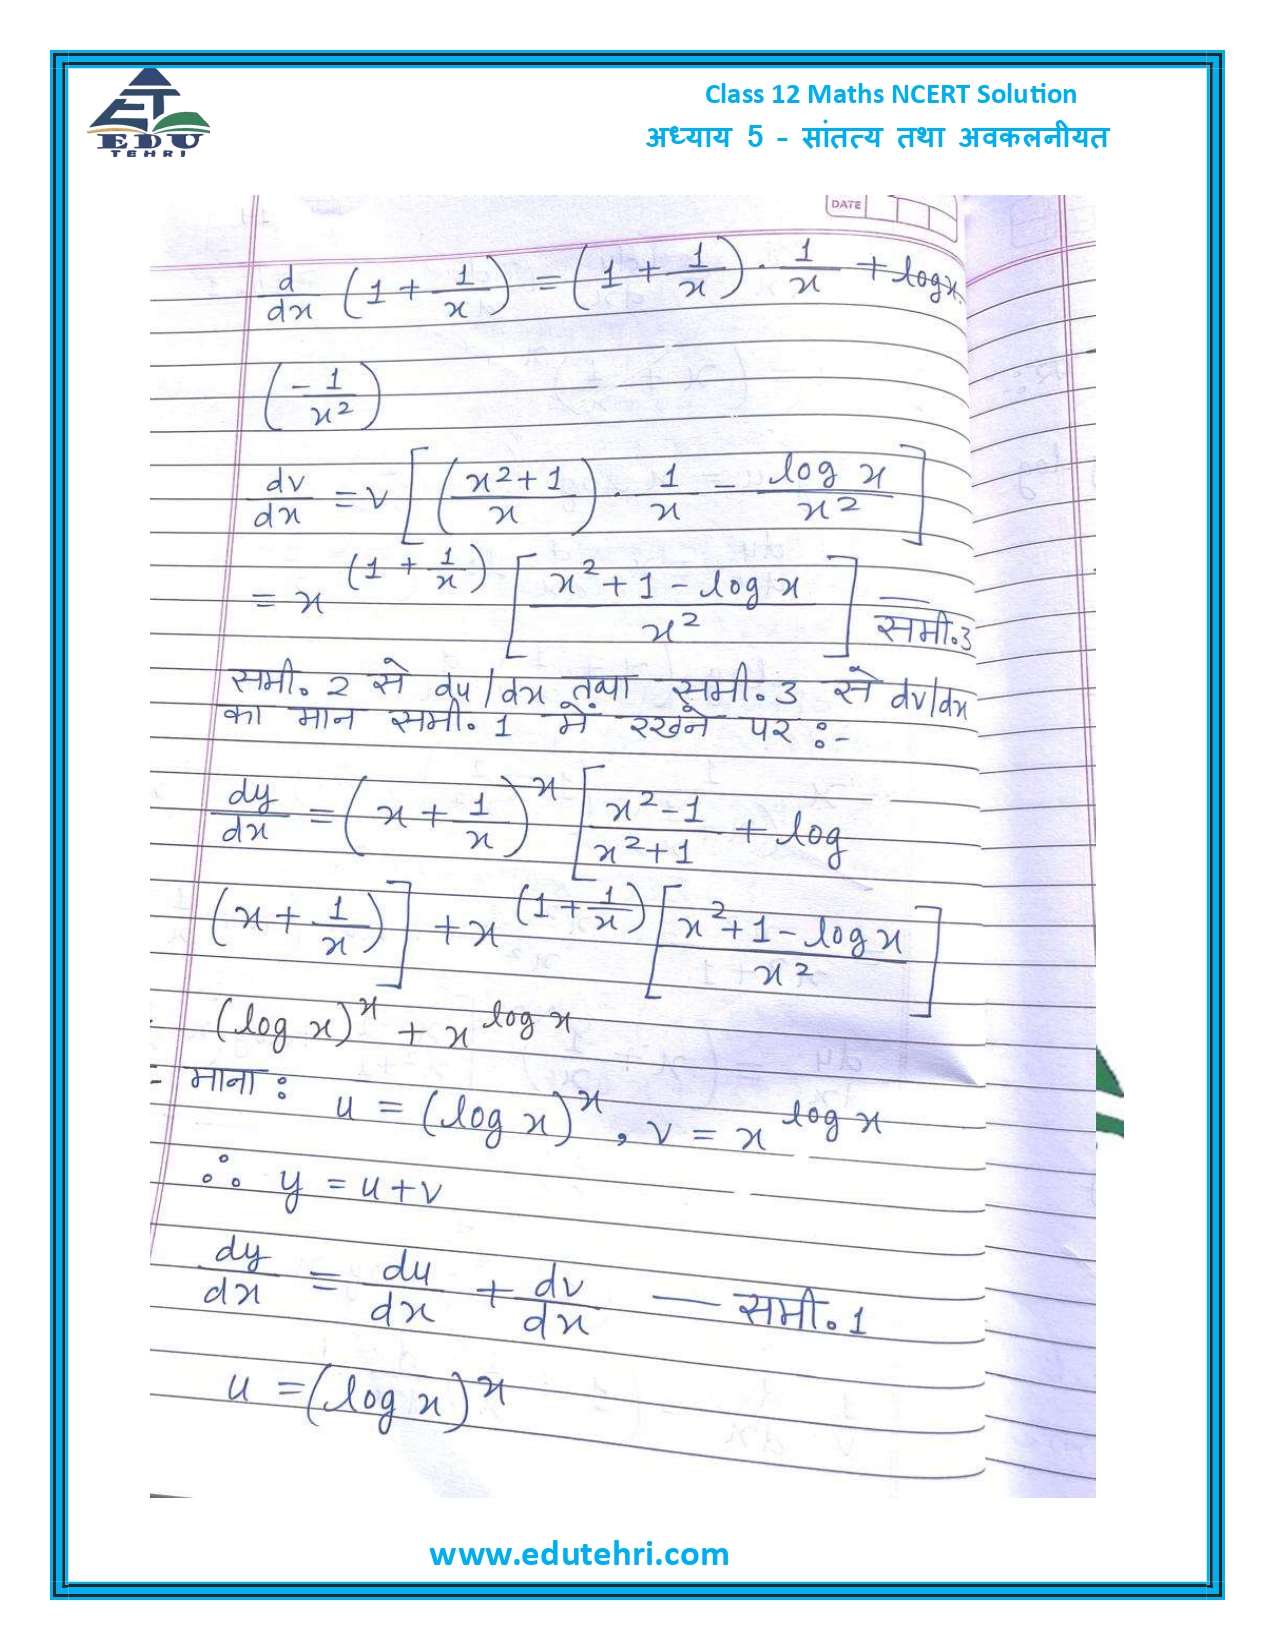 EDU
TEHRI
Class 12 Maths NCERT Solution
अध्याय 5 - सांतत्य तथा अवकलनीयत
DATE
d/dx (1 + 1/x) = (1 + 1/x) . 1/x + log x.
(-1/x²)
dv/dx = v [((x²+1)/x) . 1/x - log x/x²]
= x^(1 + 1/x) [(x² + 1 - log x)/x²] — समी.3
समी. 2 से du/dx तथा समी. 3 से dv/dx
का मान समी. 1 में रखने पर :-
dy/dx = (x + 1/x)^x [(x²-1)/(x²+1) + log
(x + 1/x)] + x^(1 + 1/x) [(x² + 1 - log x)/x²]
(log x)^x + x^(log x)
- माना : u = (log x)^x, v = x^(log x)
∴ y = u+v
dy/dx = du/dx + dv/dx — समी. 1
u = (log x)^x
www.edutehri.com